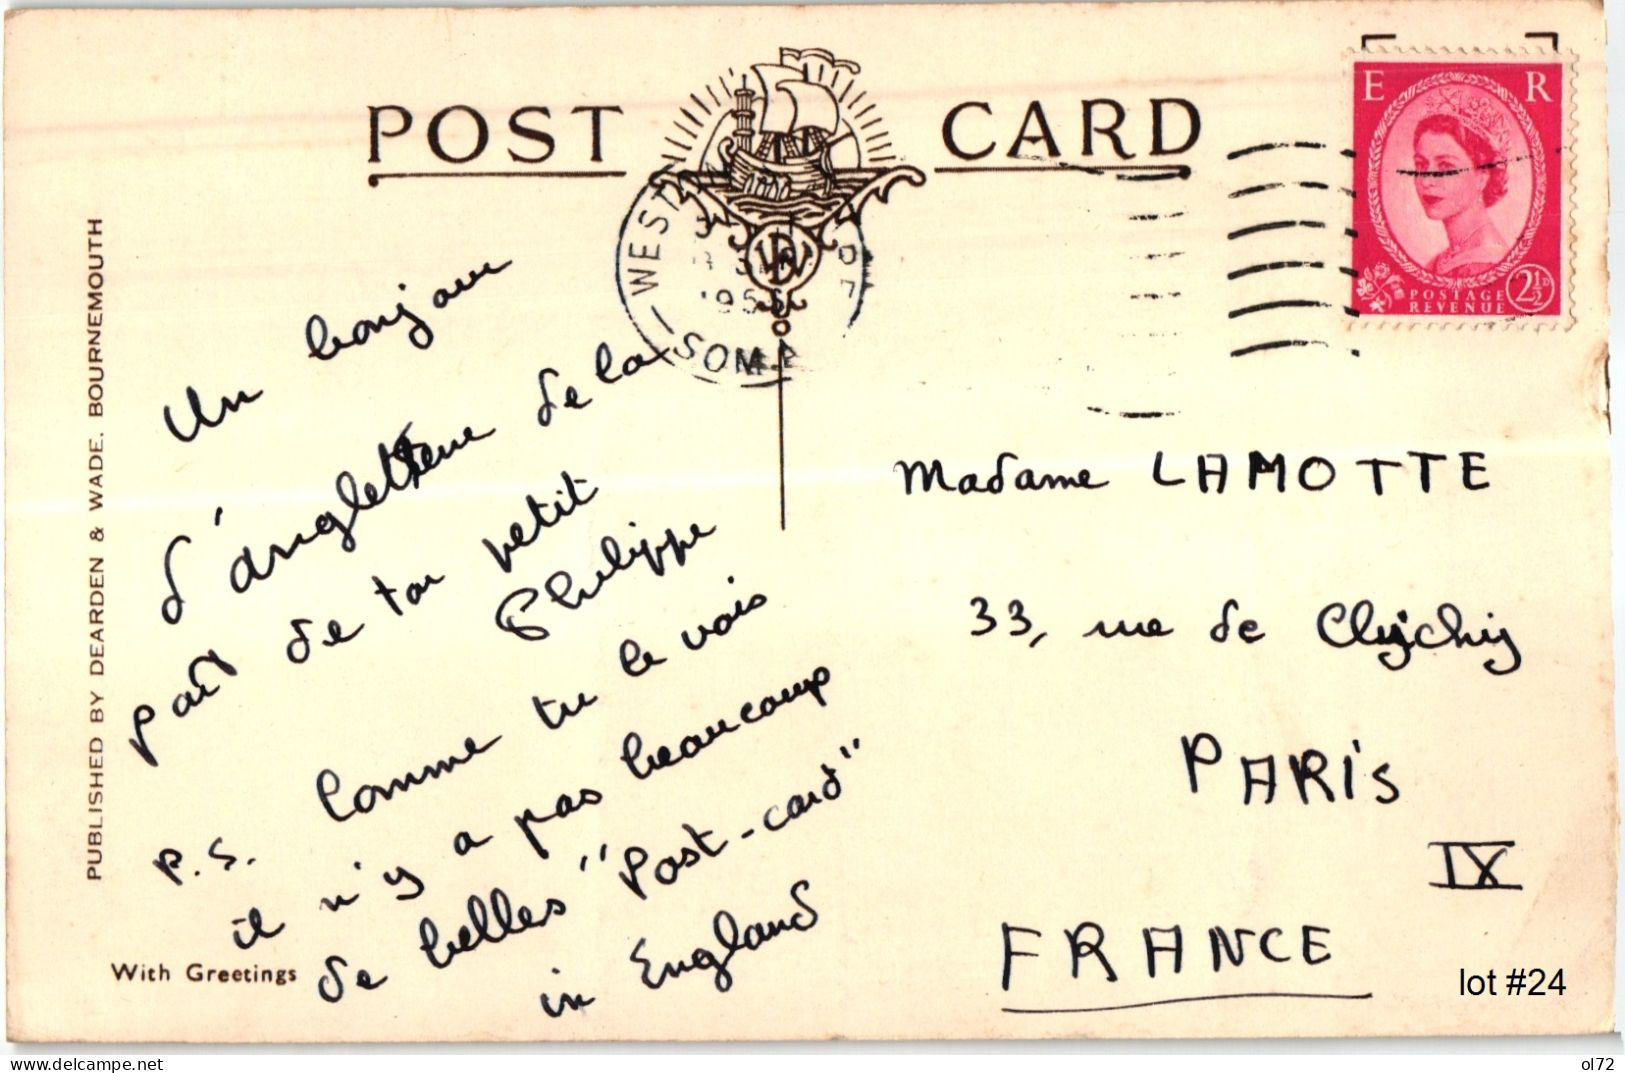 POST CARD
E R
POSTAGE
REVENUE
2½D
PUBLISHED BY DEARDEN & WADE, BOURNEMOUTH
Un bonjour
d'angleterre de la
part de ton petit
Philippe
P.S. Comme tu le vois
il n'y a pas beaucoup
de belles "Post-card"
in England
With Greetings
Madame LAMOTTE
33, rue de Clichy
PARIS
IX
FRANCE
lot #24
delcampe.net
ol72